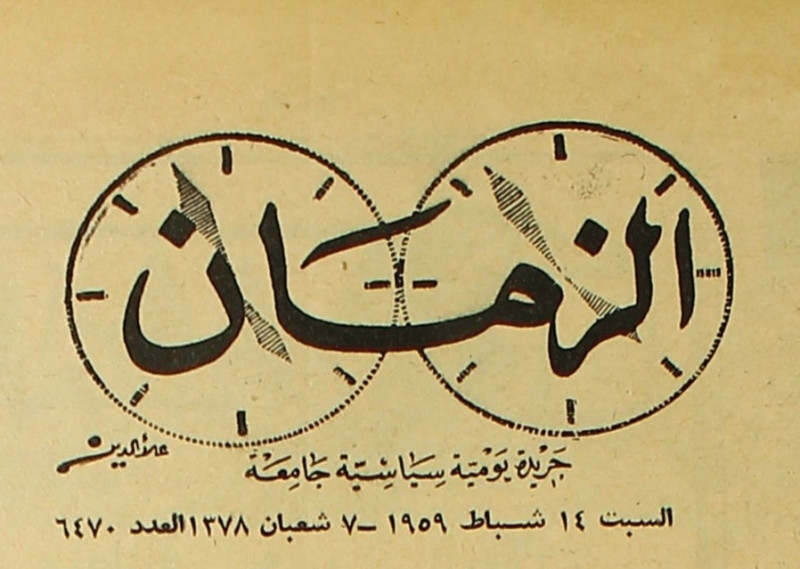 الزمان
جَريْدة يَوْميَة سِيَاسْيّة جَامِعَة
علاءالدين
السبت ١٤ شباط ١٩٥٩ – ٧ شعبان ١٣٧٨ العدد ٦٤٧٠